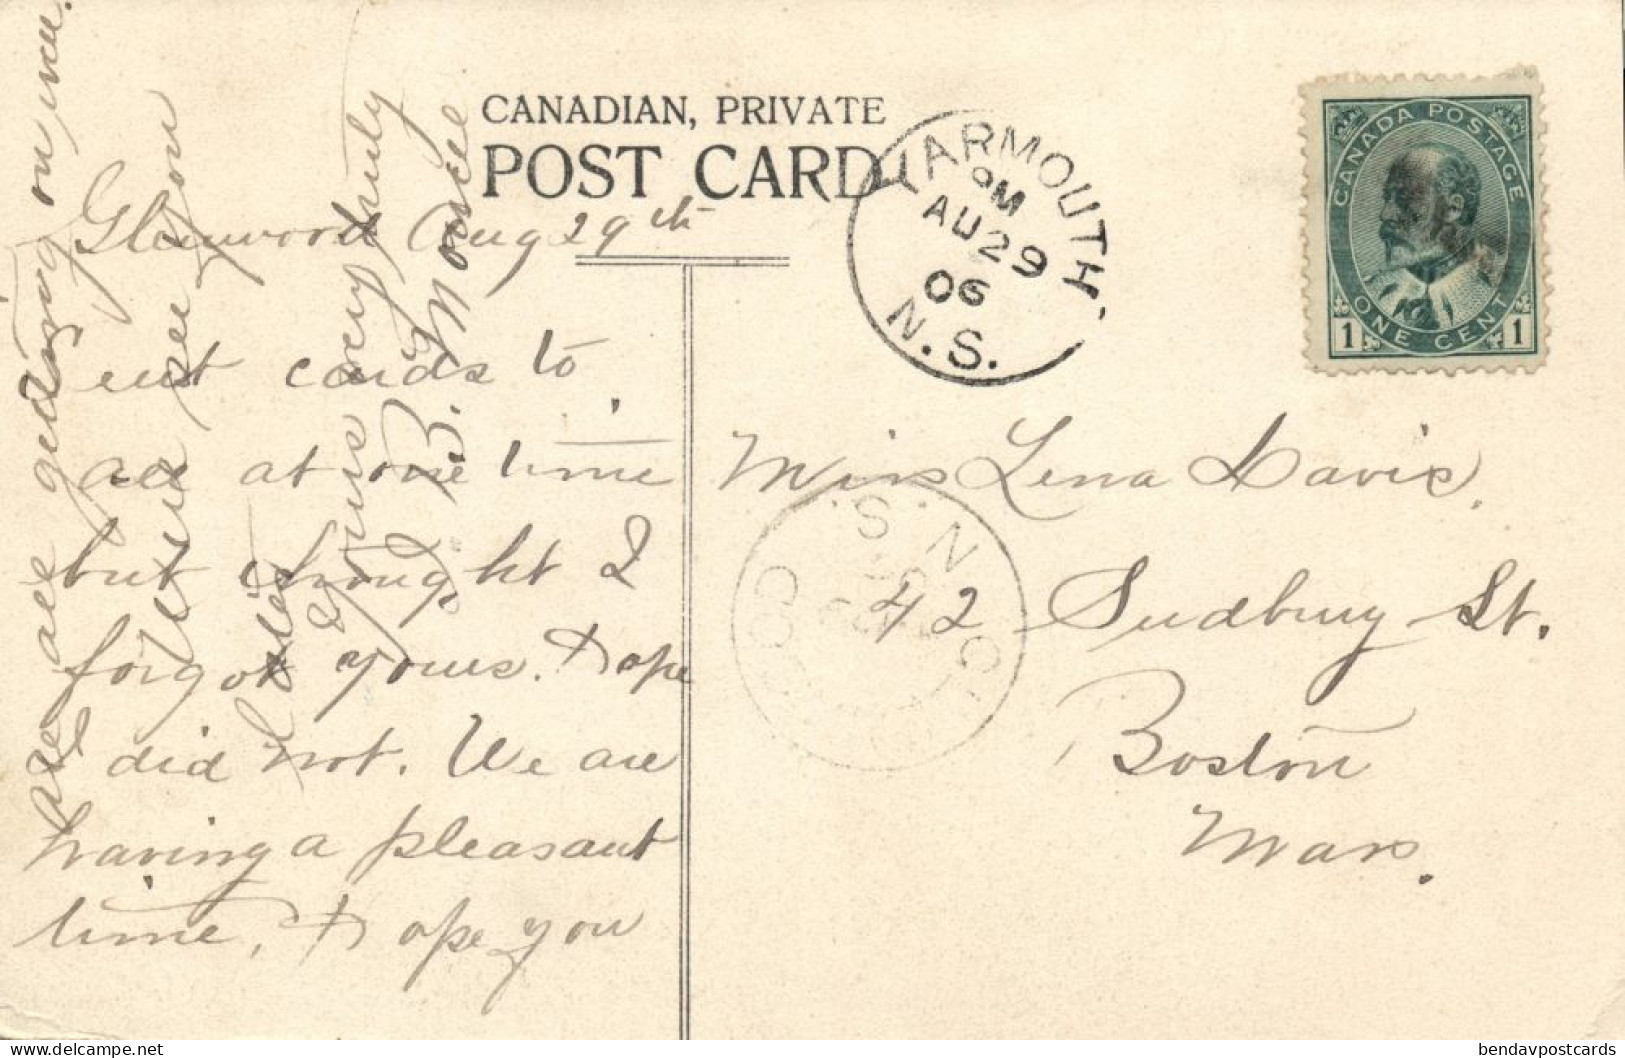 CANADIAN, PRIVATE
POST CARD
YARMOUTH.
PM
AU 29
06
N.S.
CANADA POSTAGE
1 ONE CENT 1
Glenwood Aug 29th
ent cards to
all at one time
but thought I
forgot yours. Hope
I did not. We are
having a pleasant
time, Hope you
are all getting on nice.
Will see you
later
Yours very truly
B. Morice
Miss Lena Davis,
42 Sudbury St.
Boston
Mass.
N.S.
www.delcampe.net
bendavpostcards